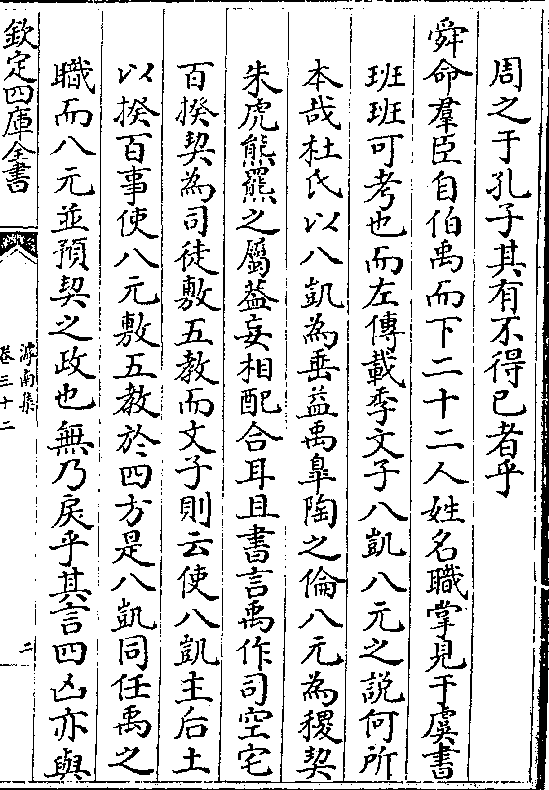 周之于孔子其有不得已者乎
舜命羣臣自伯禹而下二十二人姓名職掌見于虞書
班班可考也而左傳載季文子八凱八元之說何所
本哉杜氏以八凱為垂益禹臯陶之倫八元為稷契
朱虎熊羆之屬葢妄相配合耳且書言禹作司空宅
百揆契為司徒敷五教而文子則云使八凱主后土
以揆百事使八元敷五教於四方是八凱同任禹之
職而八元並預契之政也無乃戾乎其言四凶亦與
欽定四庫全書
滹南集
卷三十二
二